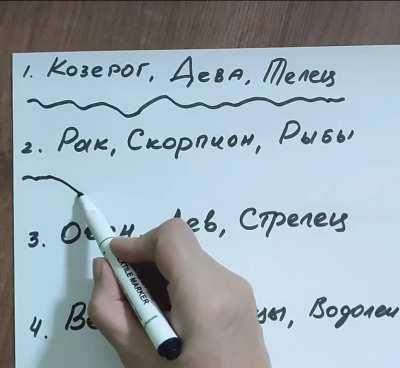 1. Козерог, Дева, Телец
2. Рак, Скорпион, Рыбы
3. Лев, Стрелец
4. Водолей
TEXTILE MARKER